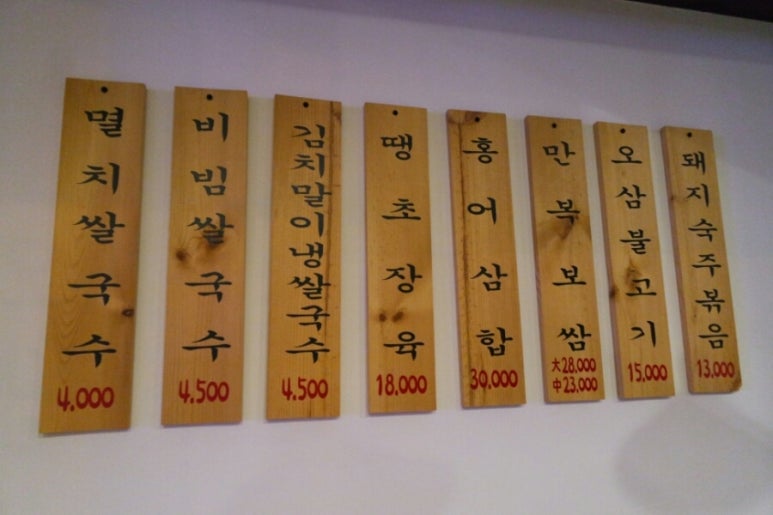 멸치쌀국수
4.000
비빔쌀국수
4.500
김치말이냉쌀국수
4.500
땡초장육
18.000
홍어삼합
30.000
만복보쌈
大28.000
中23.000
오삼불고기
15.000
돼지숙주볶음
13.000